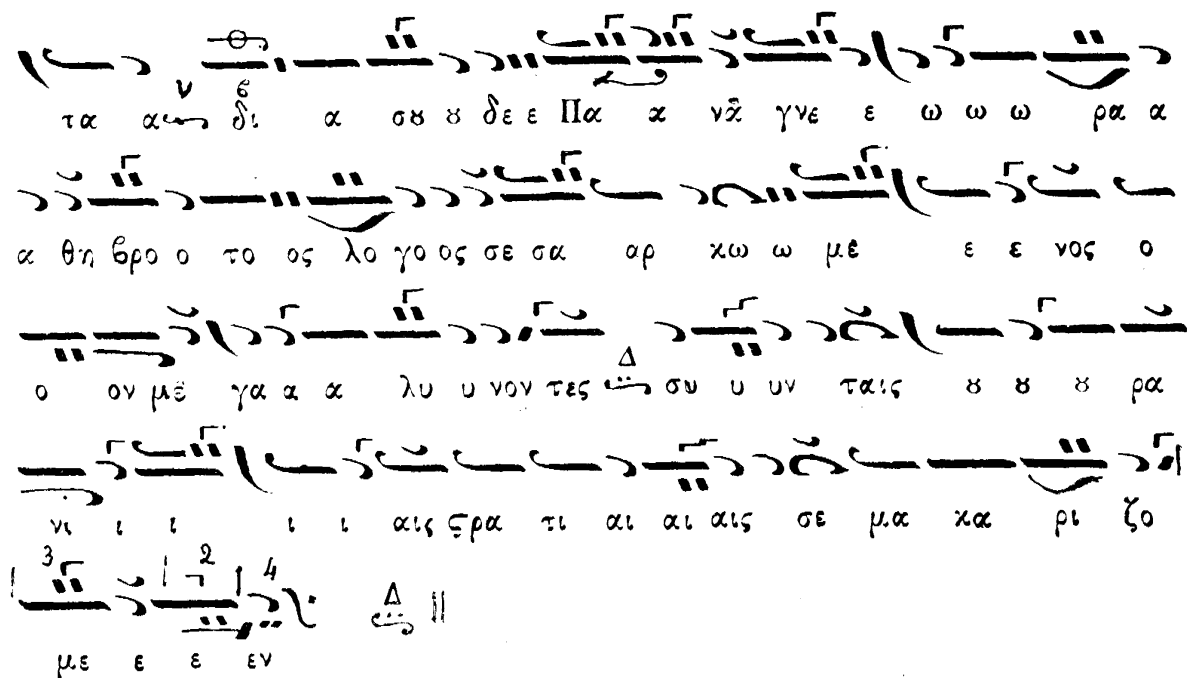 τα α δι α σȣ ȣ δε ε Πα α να γνε ε ω ω ω ρα α
α θη βρο ο το ος λο γο ος σε σα αρ κω ω με ε ε νος ο
ο ον με γα α α λυ υ νον τες Δ συ υ υν ταις ȣ ȣ ȣ ρα
νι ι ι ι ι αις ϛρα τι αι αι αις σε μα κα ρι ζο
με ε ε εν Δ